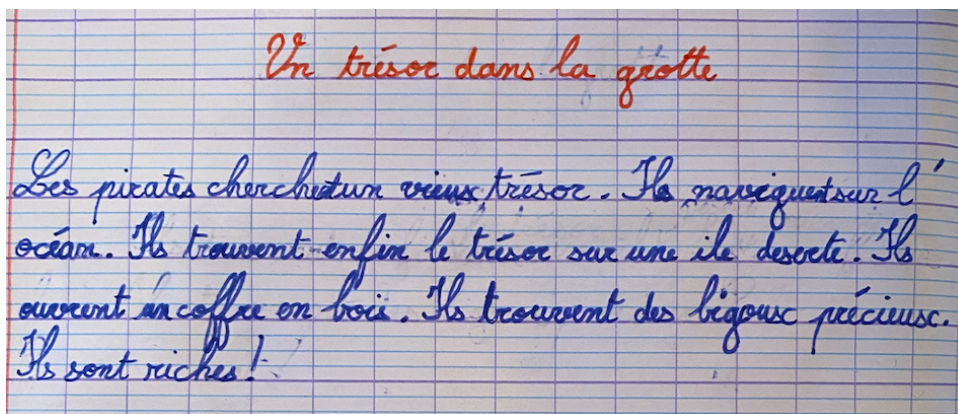 Un trésor dans la grotte
Les pirates cherchent un vieux trésor. Ils naviguent sur l'
océan. Ils trouvent enfin le trésor sur une ile deserte. Ils
ouvrent un coffre en bois. Ils trouvent des bigoux précieux.
Ils sont riches!